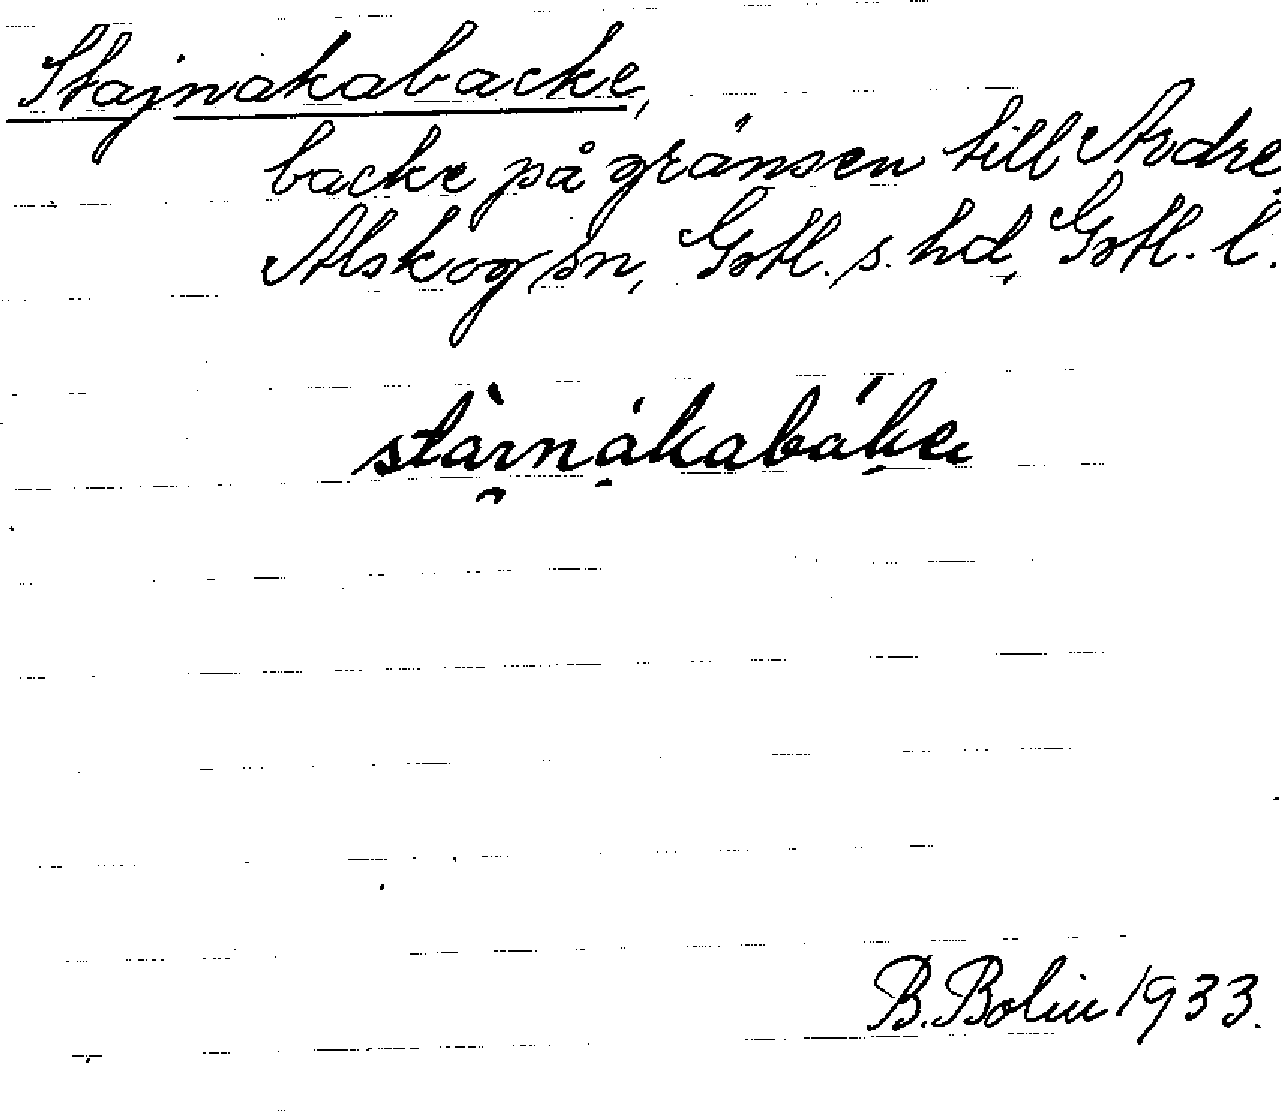 Stajnakabacke,
backe på gränsen till Ardre,
Alskog sn, Gotl. s. hd, Gotl. l.
B. Bolin 1933.